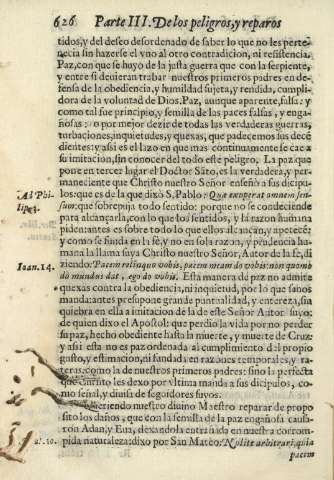 626 Parte III. De los peligros, y reparos
tidos, y del deseo desordenado de saber lo que no les perte-
necia sin hazerse el vno al otro contradicion, ni resistencia.
Paz, con que se huyo de la justa guerra que con la serpiente,
y entre si deuieran trabar nuestros primeros padres en de-
fensa de la obediencia, y humildad sujeta, y rendida, cumpli-
dora de la voluntad de Dios. Paz, aunque aparente, falsa: y
como tal fue principio, y semilla de las pazes falsas, y enga-
ñosas: o por mejor dezir de todas las verdaderas guerras,
turbaciones, inquietudes, y quexas, que padecemos sus dece
dientes: y assi es el lazo en que mas continuamente se cae a
su imitacion, sin conocer del todo este peligro. La paz que
pone en tercer lugar el Doctor Sãto, es la verdadera, y per-
maneciente que Christo nuestro Señor enseñò a sus dicipu-
Ad Phi- los: que es de la que dixo S. Pablo: Que exuperat omnem sen-
lip. sum: que sobrepuja todo sentido: porque no se condeciende
para alcançarla, con lo que los sentidos, y la razon huma na
piden: antes es sobre todo lo que ellos alcançan, y apetecẽ:
y como se funda en la fè, y no en sola razon, y prudencia hu-
mana la llama suya Christo nuestro Señor, Autor de la fe, di
Ioan. 14. ziendo: Pacem relinquo vobis, pacem meam do vobis: non quomo
do mundus dat, ego do vobis. Esta manera de paz no admite
quexas contra la obediencia, ni inquietud, por lo que sanos
manda: antes presupone grande puntualidad, y entereza, sin
quiebra en ella a imitacion de la de este Señor Autor suyo:
de quien dixo el Apostol: que perdio la vida por no perder
su paz, hecho obediente hasta la muerte, y muerte de Cruz
y assi esta no es paz ordenada al cumplimiento del propio
gusto, y estimacion, ni fundada en razones temporales, y ra-
teras, como la de nuestros primeros padres: sino la perfecta
que Christo les dexo por vltima manda a sus dicipulos, co-
mo señal, y diuisa de seguidores suyos.
Queriendo nuestro diuino Maestro reparar de propo
sito los daños, que con la semilla de la paz engañosa causa-
ron Adan, y Eua, dexandola entrañada en nuestra corrom-
10. pida naturaleza: dixo por San Mateo: Nolite arbitrari, quia
pacem